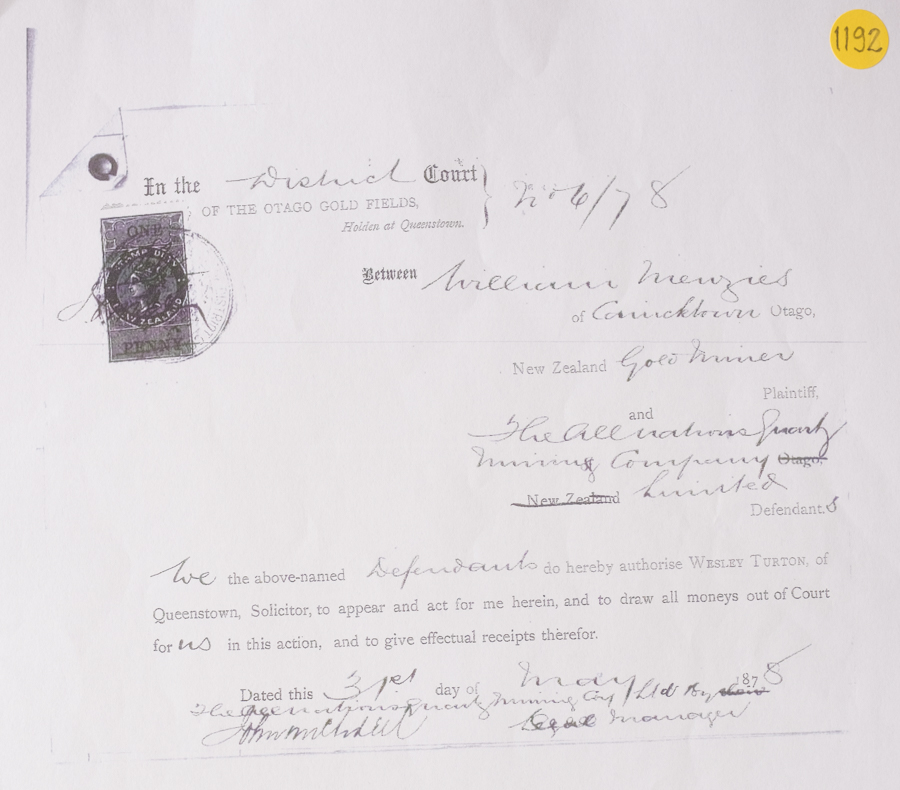 1192
In the District Court
OF THE OTAGO GOLD FIELDS,
No 6/78
Holden at Queenstown.
ONE
STAMP DUTY
NEW ZEALAND
PENNY
Between William Menzies
of Carricktown Otago,
New Zealand Gold Miner
Plaintiff,
and
The All nations Quartz
Mining Company Otago,
New Zealand Limited
Defendant.s
We the above-named Defendants do hereby authorise WESLEY TURTON, of
Queenstown, Solicitor, to appear and act for me herein, and to draw all moneys out of Court
for us in this action, and to give effectual receipts therefor.
Dated this 31st day of May 1878
The All nations Quartz Mining Coy Ltd by
John Legal Manager